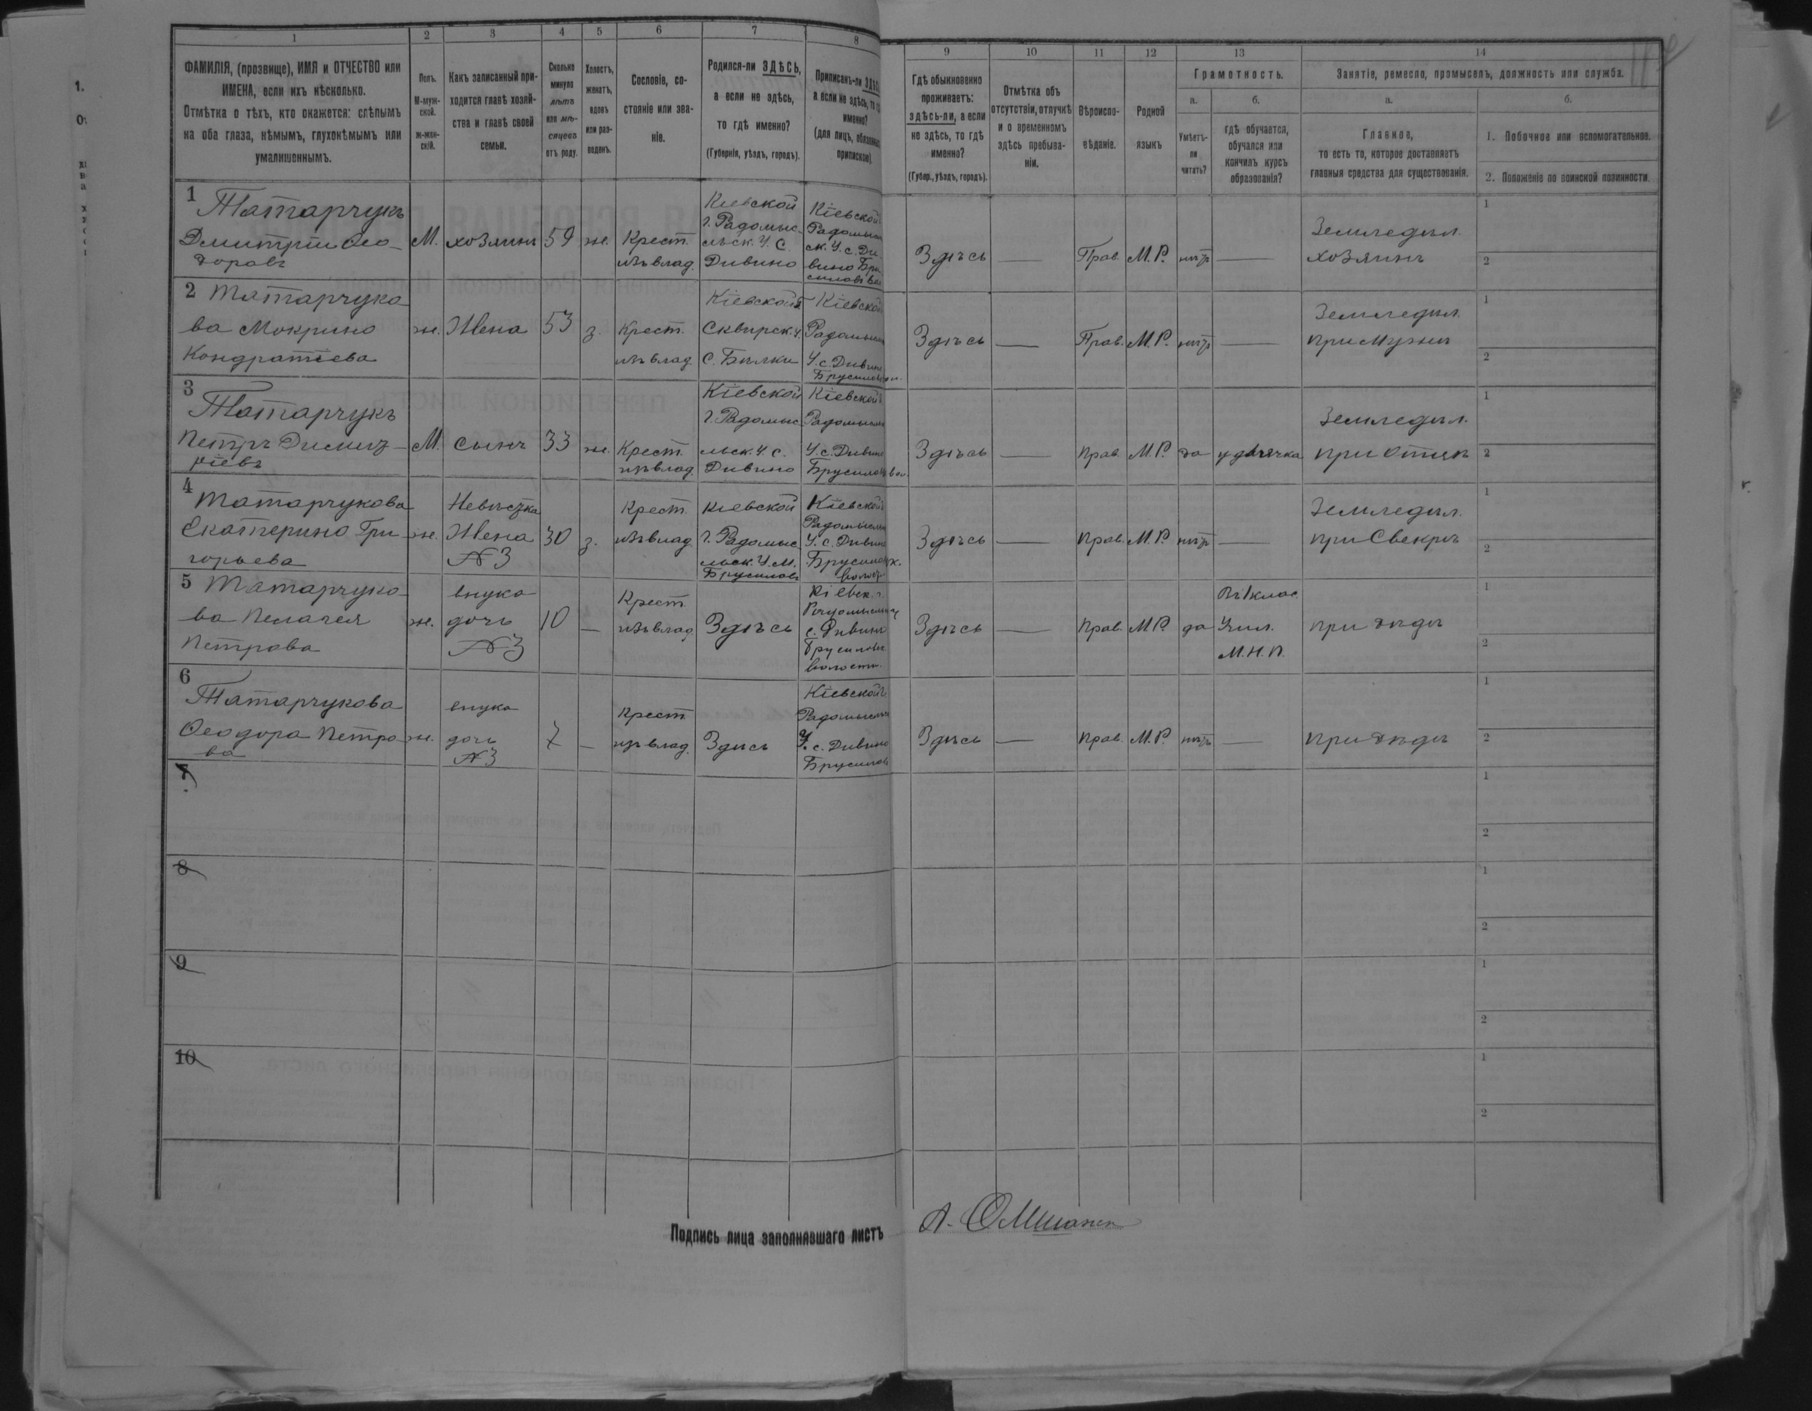 1 2 3 4 5 6 7 8 9 10 11 12 13 14
ФАМИЛІЯ, (прозвище), ИМЯ и ОТЧЕСТВО или
ИМЕНА, если ихъ нѣсколько.
Отмѣтка о тѣхъ, кто окажется: слѣпымъ
на оба глаза, нѣмымъ, глухонѣмымъ или
умалишеннымъ.
Полъ.
М-муж-
ской.
ж-жен-
скій.
Какъ записанный при-
ходится главѣ хозяй-
ства и главѣ своей
семьи.
Сколько
минуло
лѣтъ
или мѣ-
сяцевъ
отъ роду.
Холостъ,
женатъ,
вдовъ
или раз-
веденъ.
Сословіе, со-
стояніе или зва-
ніе.
Родился-ли ЗДѢСЬ,
а если не здѣсь,
то гдѣ именно?
(Губернія, уѣздъ, городъ).
Приписанъ-ли
а если не здѣсь, то
именно?
(для лицъ,
припискою)
Гдѣ обыкновенно
проживаетъ:
здѣсь-ли, а если
не здѣсь, то гдѣ
именно?
(Губер., уѣздъ, городъ).
Отмѣтка объ
отсутствіи, отлучкѣ
и о временномъ
здѣсь пребыва-
ніи.
Вѣроиспо-
вѣданіе.
Родной
языкъ
Грамотность.
а.
Умѣетъ-
ли
читать?
б.
гдѣ обучается,
обучался или
кончилъ курсъ
образованія?
Занятіе, ремесло, промыселъ, должность или служба.
а.
Главное,
то есть то, которое доставляетъ
главныя средства для существованія.
б.
1. Побочное или вспомогательное.
2. Положеніе по воинской повинности.
1
Татарчукъ
Дмитрій Ѳео-
доровъ
М.
хозяинъ
59
ж.
Крест.
изъ влад.
Кіевской
г. Радомыс-
льск. У. С.
Дивино
Кіевской
Здѣсь
Прав.
М. Р.
нѣтъ
Земледѣл.
хозяинъ
1
2
2 Татарчуко-
ва Мокрино
Кондратіева
ж.
Жена
53
з.
Крест.
изъ влад.
Кіевской
Сквирск. у.
с. Бѣлки
Кіевской
Здѣсь
Прав.
М. Р.
нѣтъ
Земледѣл.
при мужѣ
1
2
3
Татарчукъ
Петръ Димит-
ріевъ
М.
сынъ
33
ж.
Крест.
изъ влад.
Кіевской
г. Радомыс
льск. У. с.
Дивино
Кіевской
У. с. Дивино
Здѣсь
Прав.
М. Р.
да
у дьячка
Земледѣл.
при отцѣ
1
2
4
Татарчукова
Екатерино Гри-
горьева
ж.
Невѣстка
Жена
№ 3
30
з.
Крест.
изъ влад.
Кіевской
г. Радомыс
льск. У. М.
Брусиловъ
Кіевской
У. с. Дивино
Здѣсь
Прав.
М. Р.
нѣтъ
Земледѣл.
при Свекрѣ
1
2
5 Татарчуко-
ва Пелагея
Петрова
ж.
внука
дочь
№ 3
10
Крест
изъ влад.
Здѣсь
с. Дивино
волости.
Здѣсь
Прав.
М. Р.
да
Въ 1 клас.
Учил.
М. Н. П.
при дѣдѣ
1
2
6
Татарчукова
Ѳеодора Петро-
ва
ж.
внука
дочь
№ 3
7
Крест
изъ влад.
Здѣсь
Кіевской
У. с. Дивино
Здѣсь
Прав.
М. Р.
нѣтъ
при дѣдѣ
1
2
7
1
2
8
1
2
9
1
2
10
1
2
Подпись лица заполнявшаго листъ